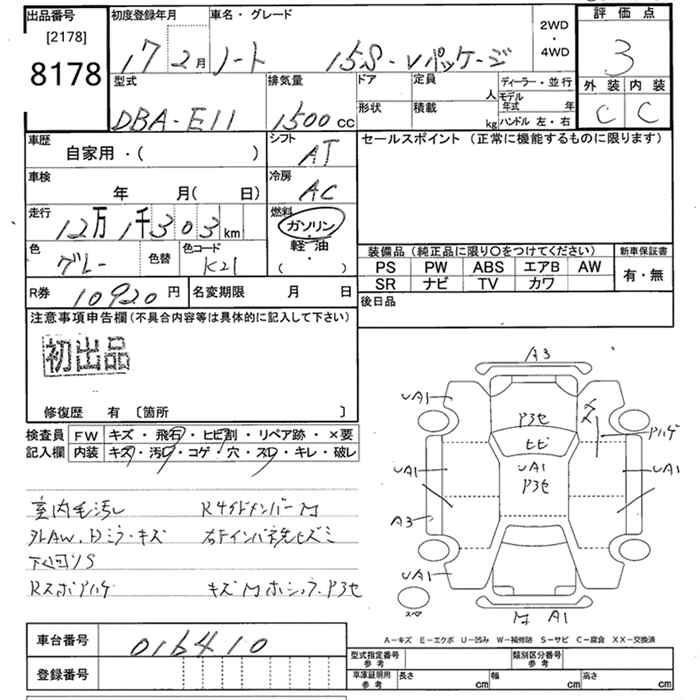 出品番号
[2178]
8178
初度登録年月
17 2月
車名・グレード
ノート 15S-Vパッケージ
2WD
・
4WD
評価点
3
外装 内装
C C
型式
DBA-E11
排気量
1500cc
ドア
形状
定員
人
積載
kg
ディーラー・並行
モデル年式 年
ハンドル 左・右
車歴
自家用・( )
シフト
AT
車検
年 月( 日)
冷房
AC
走行
12万1千303km
燃料
ガソリン
軽油
( ・ )
色
グレー
色替
色コード
K21
R券 10920円
名変期限 月 日
セールスポイント (正常に機能するものに限ります)
装備品 (純正品に限り○をつけてください)
新車保証書
PS PW ABS エアB AW
有・無
SR ナビ TV カワ
後日品
注意事項申告欄(不具合内容等は具体的に記入して下さい)
初出品
修復歴 有 〔箇所 〕
検査員 FW キズ・飛石・ヒビ割・リペア跡・×要
記入欄 内装 キズ・汚レ・コゲ・穴・スレ・キレ・破レ
室内毛汚し
外AW、Dミラーキズ
下回りS
A3
UA1
P3セ
ヒビ
UA1
P3セ
キズ
Pハゲ
UA1
UA1
A3
UA1
スペア
M A1
A-キズ E-エクボ U-凹み W-補修跡 S-サビ C-腐食 XX-交換済
車台番号 016410
登録番号
型式指定番号
参考
類別区分番号
参考
車庫証明用
参考
長さ cm
幅 cm
高さ cm